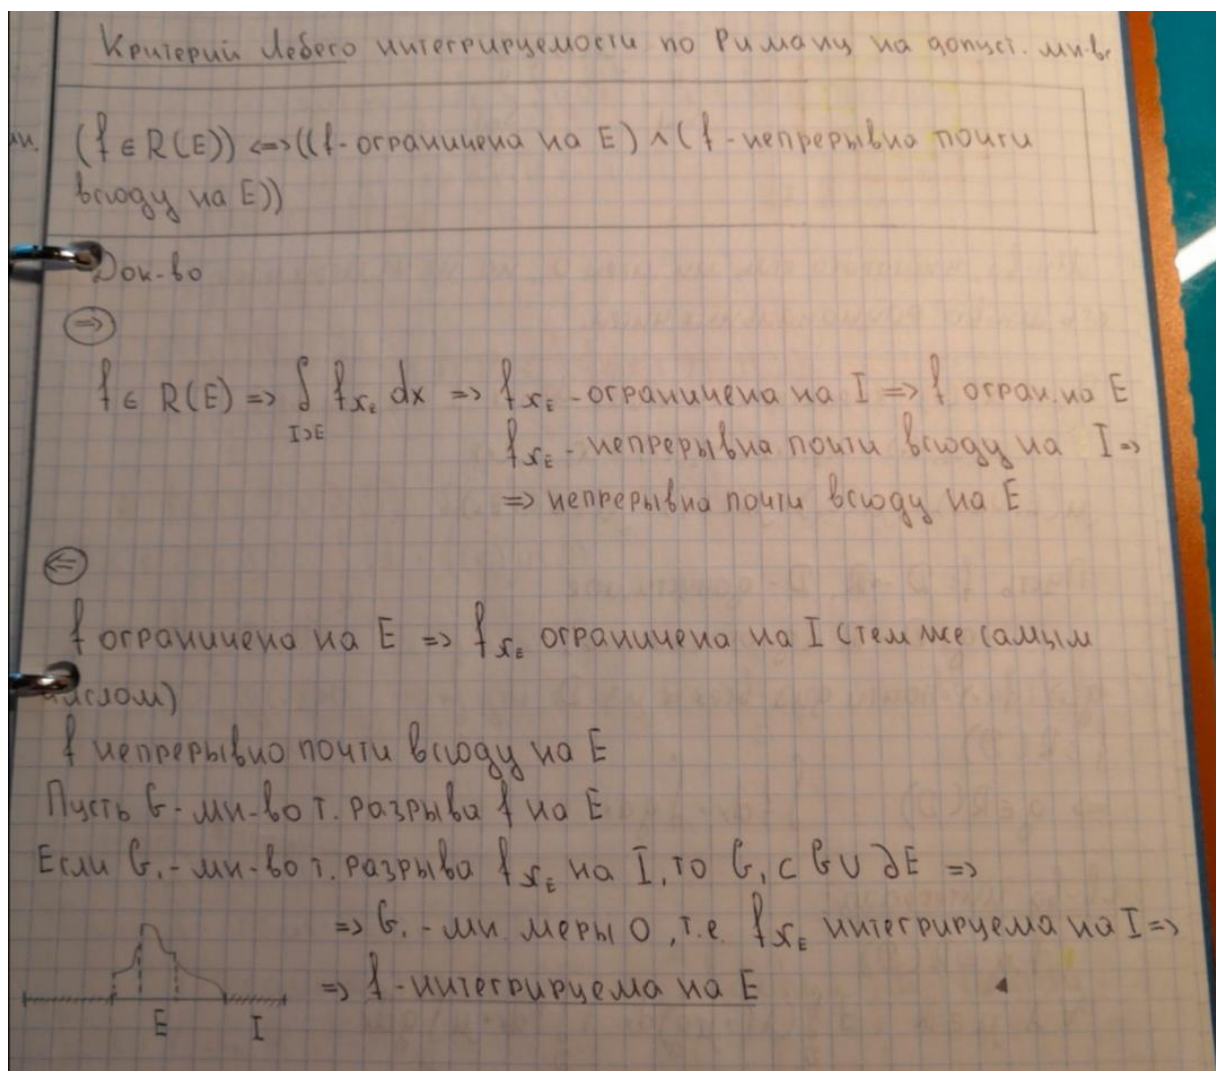 Критерий Лебега интегрируемости по Риману на допуст. мн-ве
мн.
(f ∈ R(E)) <=> ((f - ограничена на E) ∧ (f - непрерывна почти
всюду на E))
Док-во
=>
f ∈ R(E) => ∫_{I⊃E} f_{χ_E} dx => f_{χ_E} - ограничена на I => f огран. на E
f_{χ_E} - непрерывна почти всюду на I =>
=> непрерывна почти всюду на E
<=
f ограничена на E => f_{χ_E} ограничена на I (с тем же самым
числом)
f непрерывно почти всюду на E
Пусть G - мн-во т. разрыва f на E
Если G₁ - мн-во т. разрыва f_{χ_E} на I, то G₁ ⊂ G ∪ ∂E =>
=> G₁ - мн. меры 0, т.е f_{χ_E} интегрируема на I =>
=> f - интегрируема на E
E I